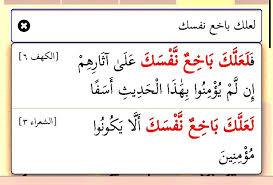 لعلك باخع نفسك
فَلَعَلَّكَ بَاخِعٌ نَّفْسَكَ عَلَىٰ آثَارِهِمْ [الكهف ٦]
إِن لَّمْ يُؤْمِنُوا بِهَٰذَا الْحَدِيثِ أَسَفًا
لَعَلَّكَ بَاخِعٌ نَّفْسَكَ أَلَّا يَكُونُوا [الشعراء ٣]
مُؤْمِنِينَ